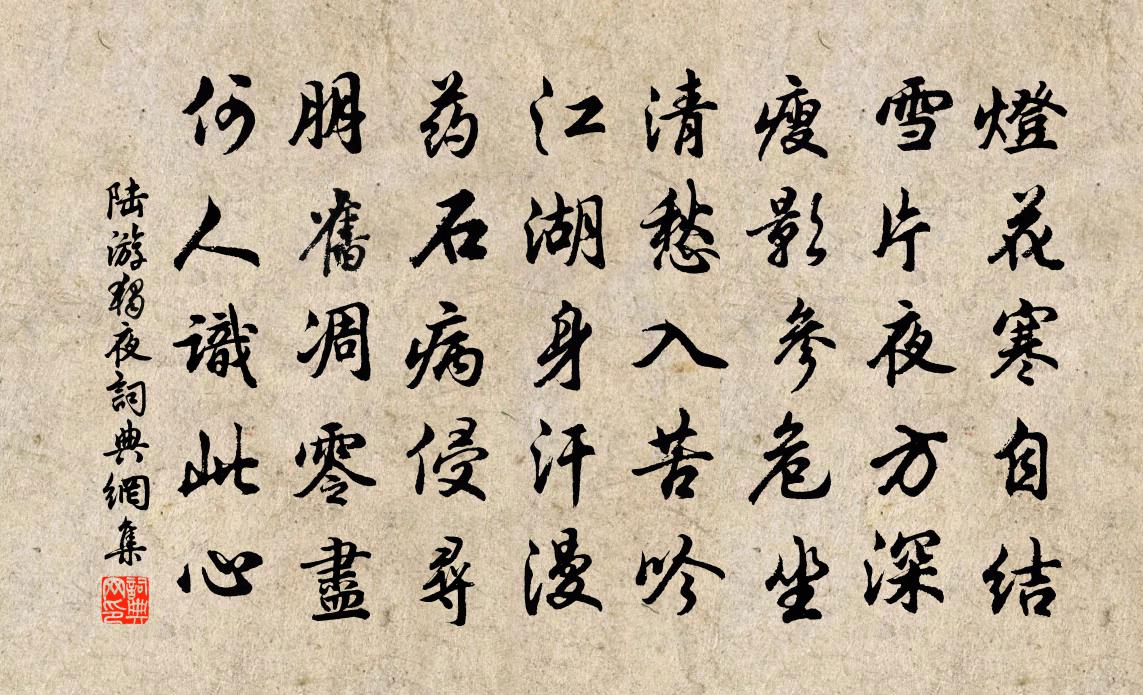 燈花寒自結
雪片夜方深
瘦影參危坐
清愁入苦吟
江湖身汗漫
药石病侵尋
朋舊凋零盡
何人識此心
陆游獨夜詞典網集
詞典网印